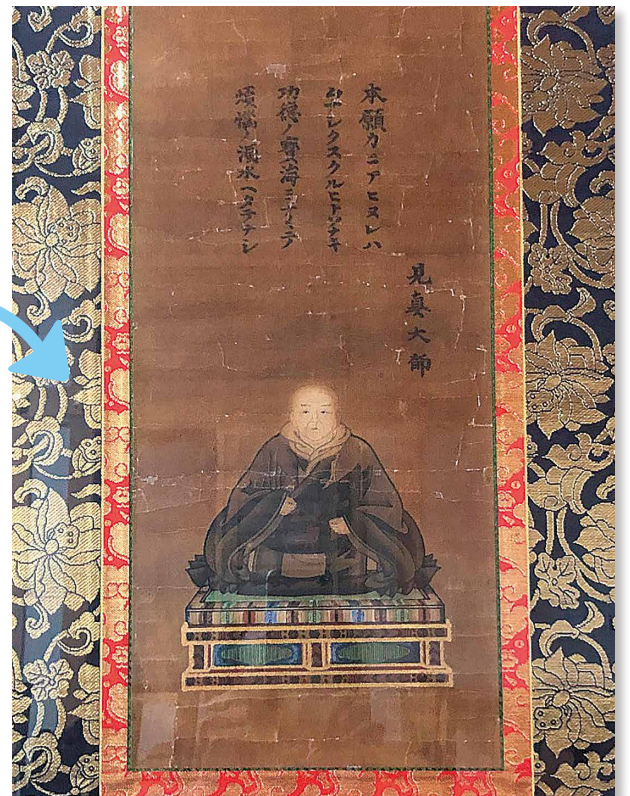 本願力ニアヒヌレハ
ムナシクスクルヒトソナキ
功徳ノ寳海ミチミチテ
煩惱ノ濁水ヘタテナシ
見真大師